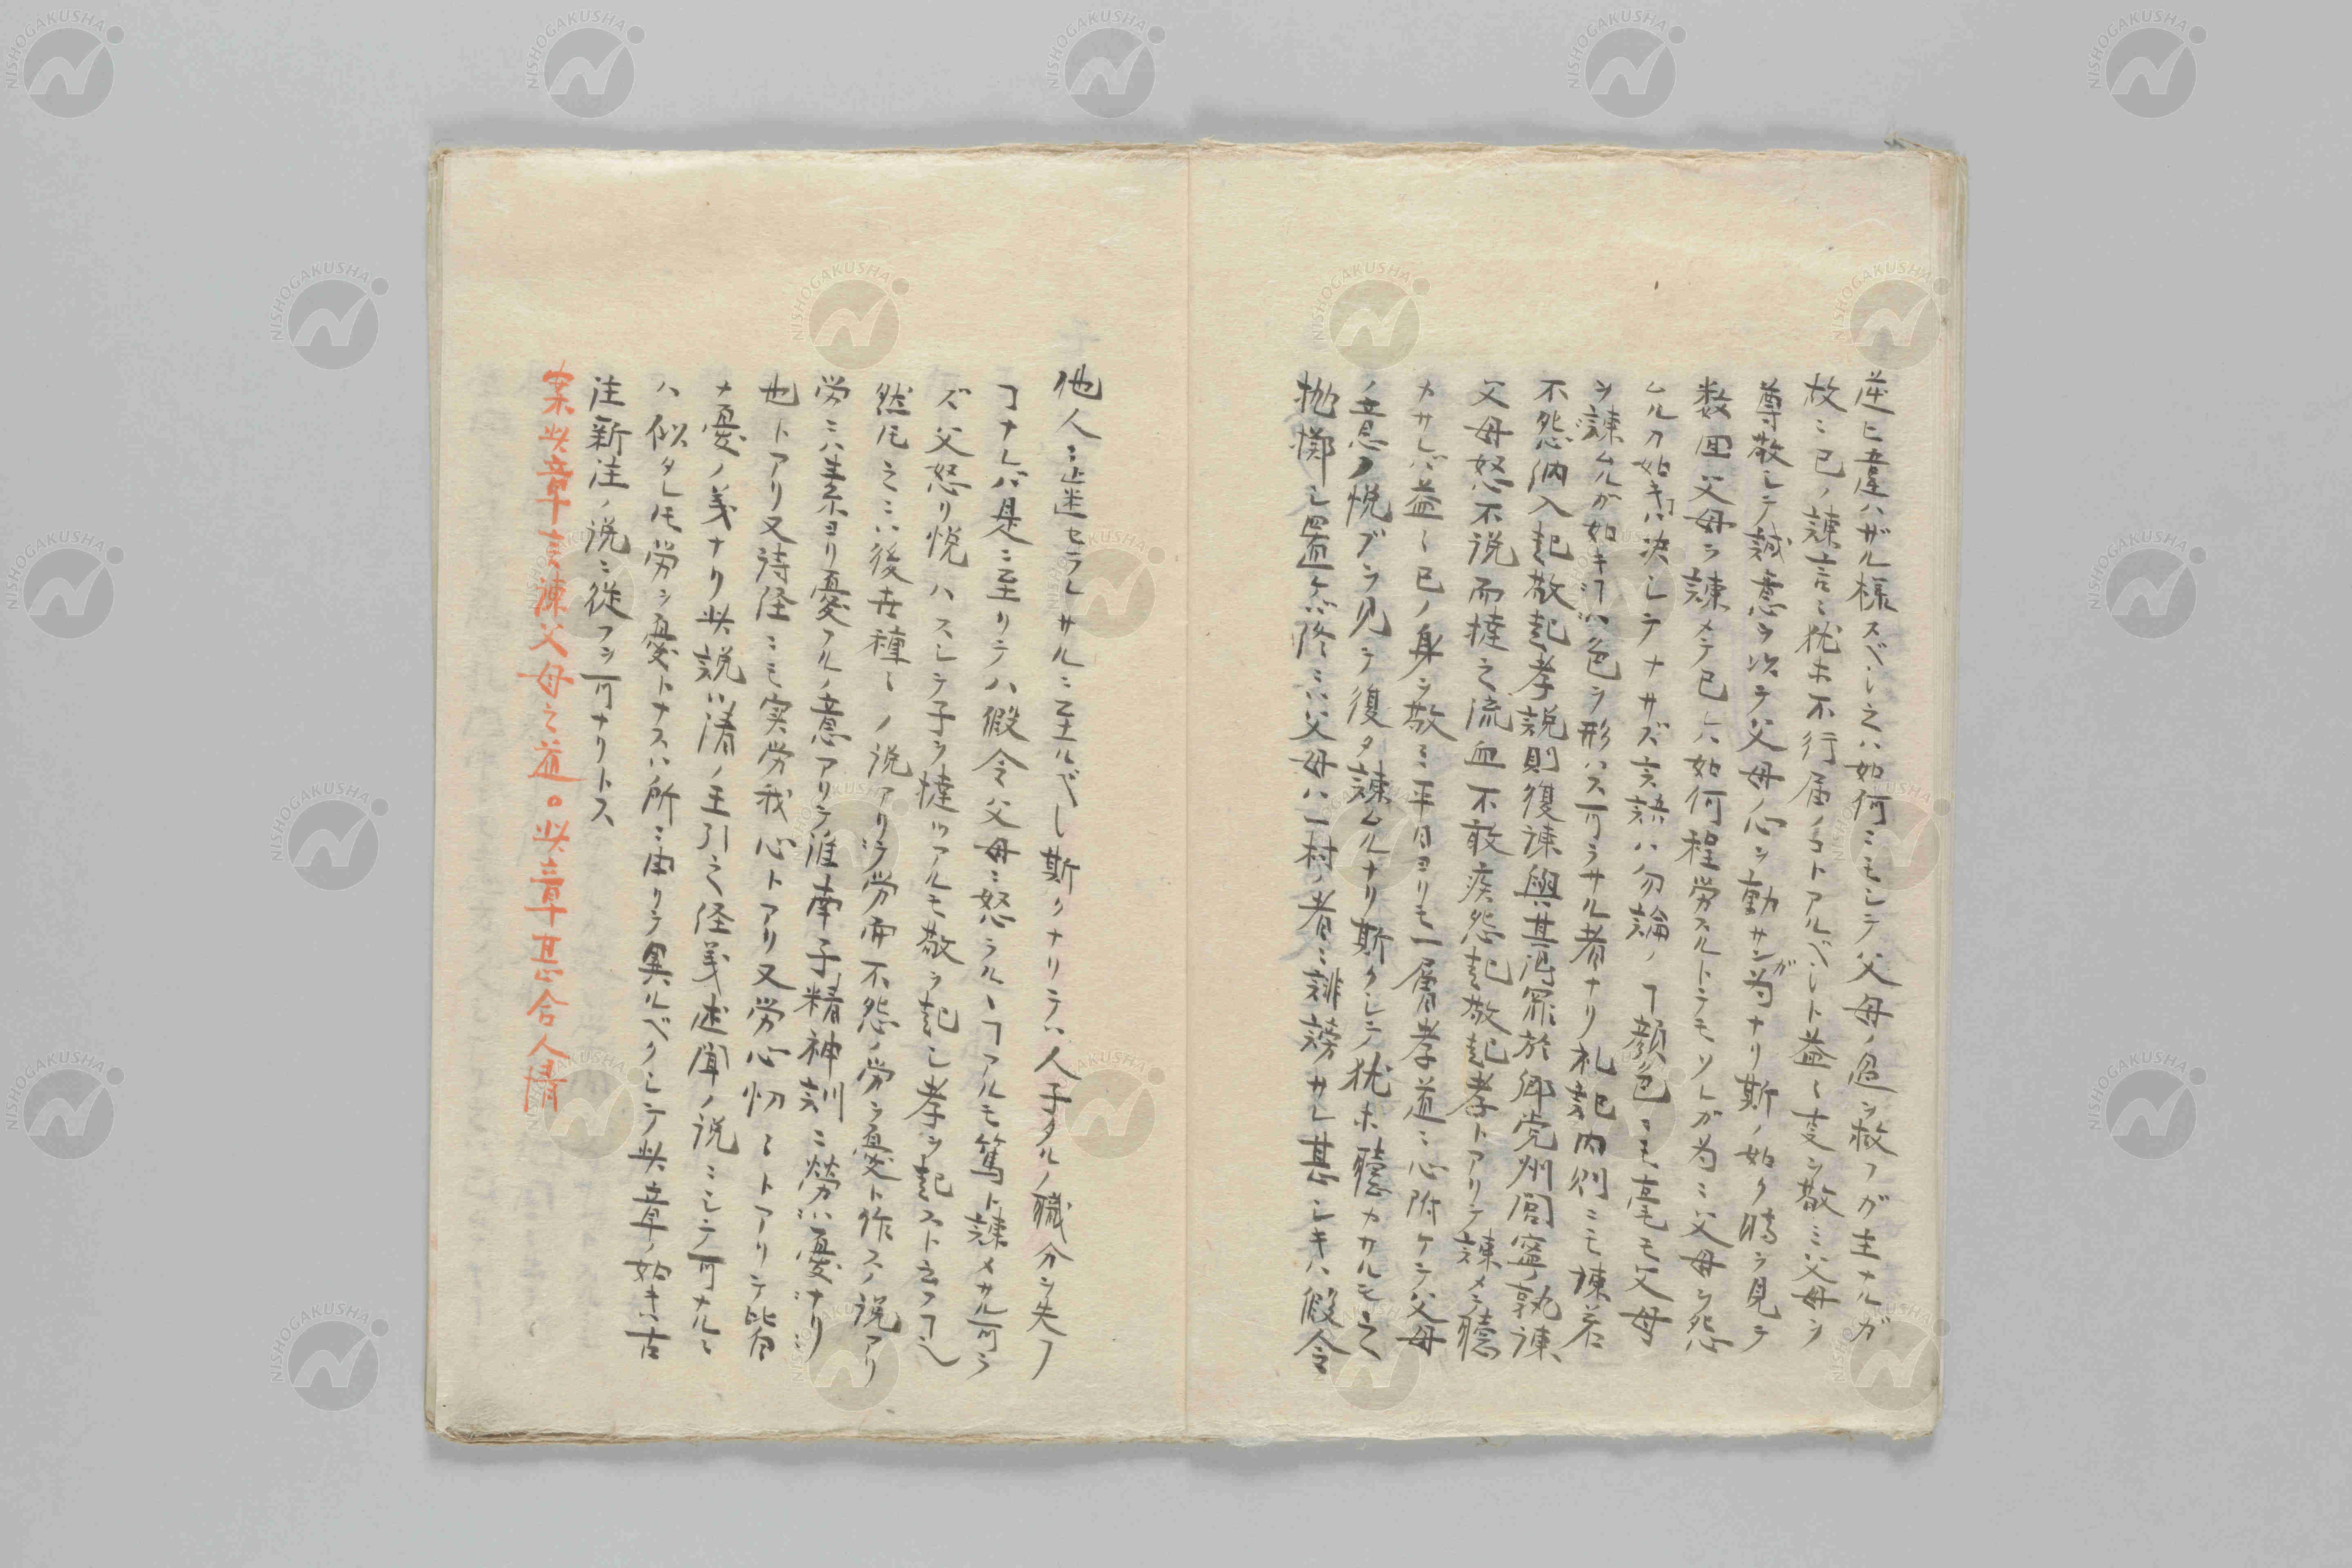 逆ヒ違ハザル様スベシ之ハ如何ニモシテ父母ノ過ヲ救フガ主ナルガ
故ニ己ノ諫言ニ猶未不行届ノコトアルベシト益〻支ヲ敬ミ父母ヲ
尊敬シテ誠意ヲ以テ父母ノ心ヲ動サンガ為ナリ斯ノ如ク時ヲ見テ
数回父母ヲ諫メテ己ハ如何程労スルトテモソレガ為ニ父母ヲ怨
ムルカ如キハ決シテナサズ言語ハ勿論ノヿ顔色ニモ毫モ父母
ヲ諫ムルガ如キヿハ色ヲ形ハス可ラサル者ナリ礼記内則ニモ諫若
不怨納入起敬起孝説則復諫與其得罪於郷党州閭寧孰諫
父母怒不説而撻之流血不敢疾怨起敬起孝トアリテ諫メテ聴
カサレバ益〻己ノ身ヲ敬ミ平日ヨリモ一層孝道ニ心附ケテ父母
ノ意ノ悦ブヲ見テ復タ諫ムルナリ斯クシテ猶ホ聴カカルモ之
抛擲シ置ケバ終ニハ父母ハ一村ノ者ニ誹謗サレ甚シキハ假令
他人ニ迷セラレサルニ至ルベシ斯クナリテハ人子タルノ職分ヲ失フ
ヿナレバ是ニ至リテハ假令父母ニ怒ラルヽヿアルモ篤ト諫メサル可ラ
ズ父怒リ悦ハスシテ子ヲ撻ツアルモ敬ヲ起シ孝ヲ起スト云フヿ也
然𪜈之ニハ後世種〻ノ説アリテ労而不怨ノ労ヲ憂ト作スノ説アリ
労ニハ素ヨリ憂フルノ意アリテ淮南子精神訓ニ労ハ憂ナリ
也トアリ又詩経ニモ実労我心トアリ又労心忉〻トアリテ皆
ナ憂ノ義ナリ此説ハ清ノ王引之経義述聞ノ説ニシテ可ナルニ
ハ似タレ𪜈労ヲ憂トナスハ所ニ由リテ異ルベクシテ此章ノ如キハ古
注新注ノ説ニ従フヲ可ナリトス
案此章言諫父母之道。此章甚合人情
NISHOGAKUSHA